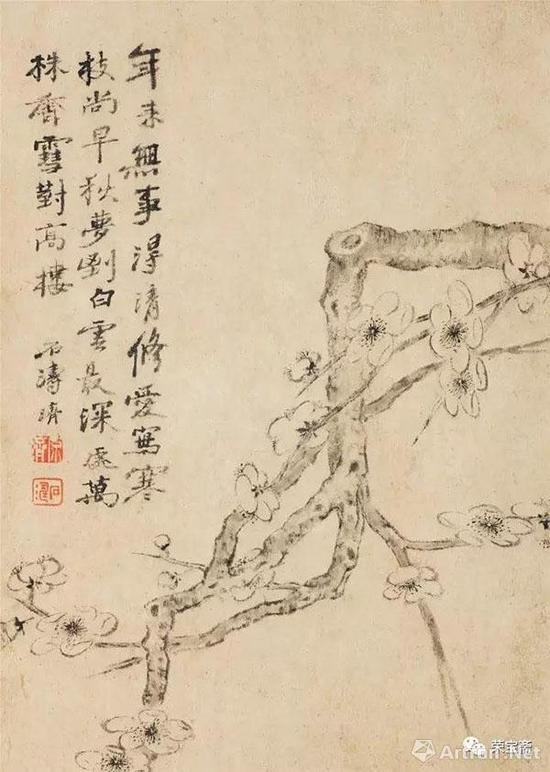 年来無事淂清修愛寫寒
枝尚早秋夢到白雲最深處萬
株齊雪對高樓
石濤濟
荣宝斋
Artron.Net